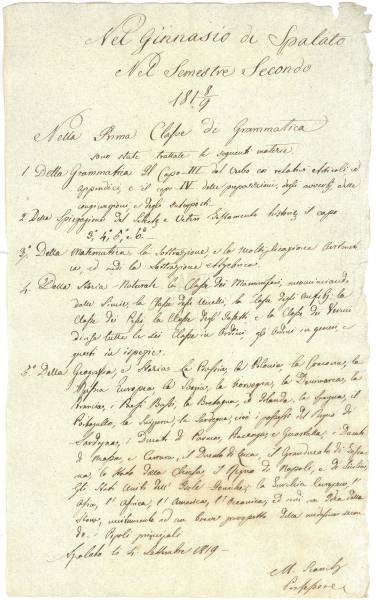 Nel Ginnasio di Spalato
Nel Semestre Secondo
181 8/9
Nella Prima Classe di Grammatica
sono state trattate le seguenti materie.
1 Della Grammatica Il Capo III del Verbo coi relativi articoli ed
appendici, e il capo IV delle preposizioni, degli avverbj, delle
congiunzioni, e degli
2. Della Spiegazione del e Vetus Testamento il capo
3°, 4°, 5°, e 6°
3° Della Matematica la Sottrazione, e la Moltiplicazione
ed indi la Sottrazione
4. Della Storia Naturale la Classe dei Mammiferi, incominciando
dalle Simie, la Classe degli Uccelli, la Classe degli Anfibj, la
Classe dei Pesci, la Classe degl' Insetti e la Classe dei Vermi
divise tutte le sei Classi in Ordini, gli Ordini in generi, e
questi in ispezie.
5° Della Geografia, e Storia la Prussia, la Polonia, la Cracovia, la
Russia Europea, la Svezia, la Norvegia, la Danimarca, la
Francia, i Paesi Bassi, la Bretagna, l' Islanda, la Spagna, il
Portogallo, la Svizzera, la Sardegna, cioè i possessi del Regno di
Sardegna, i Ducati di Parma, Piacenza, e Guastalla, i Ducati
di Massa, e Carrara, il Ducato di Luca, il Granducato di Tosca-
na, lo Stato della Chiesa, il Regno di Napoli, e di Sicilia,
Gli Stati Uniti dell' Isole Joniche, la Turchia Europea, l'
Asia, l' Africa, l' America, l' Oceanica, ed indi un' Idea della
Storia, unitamente ad un breve prospetto della
i Popoli principali
Spalato li 4 Settembre 1819 -
M.
Professore